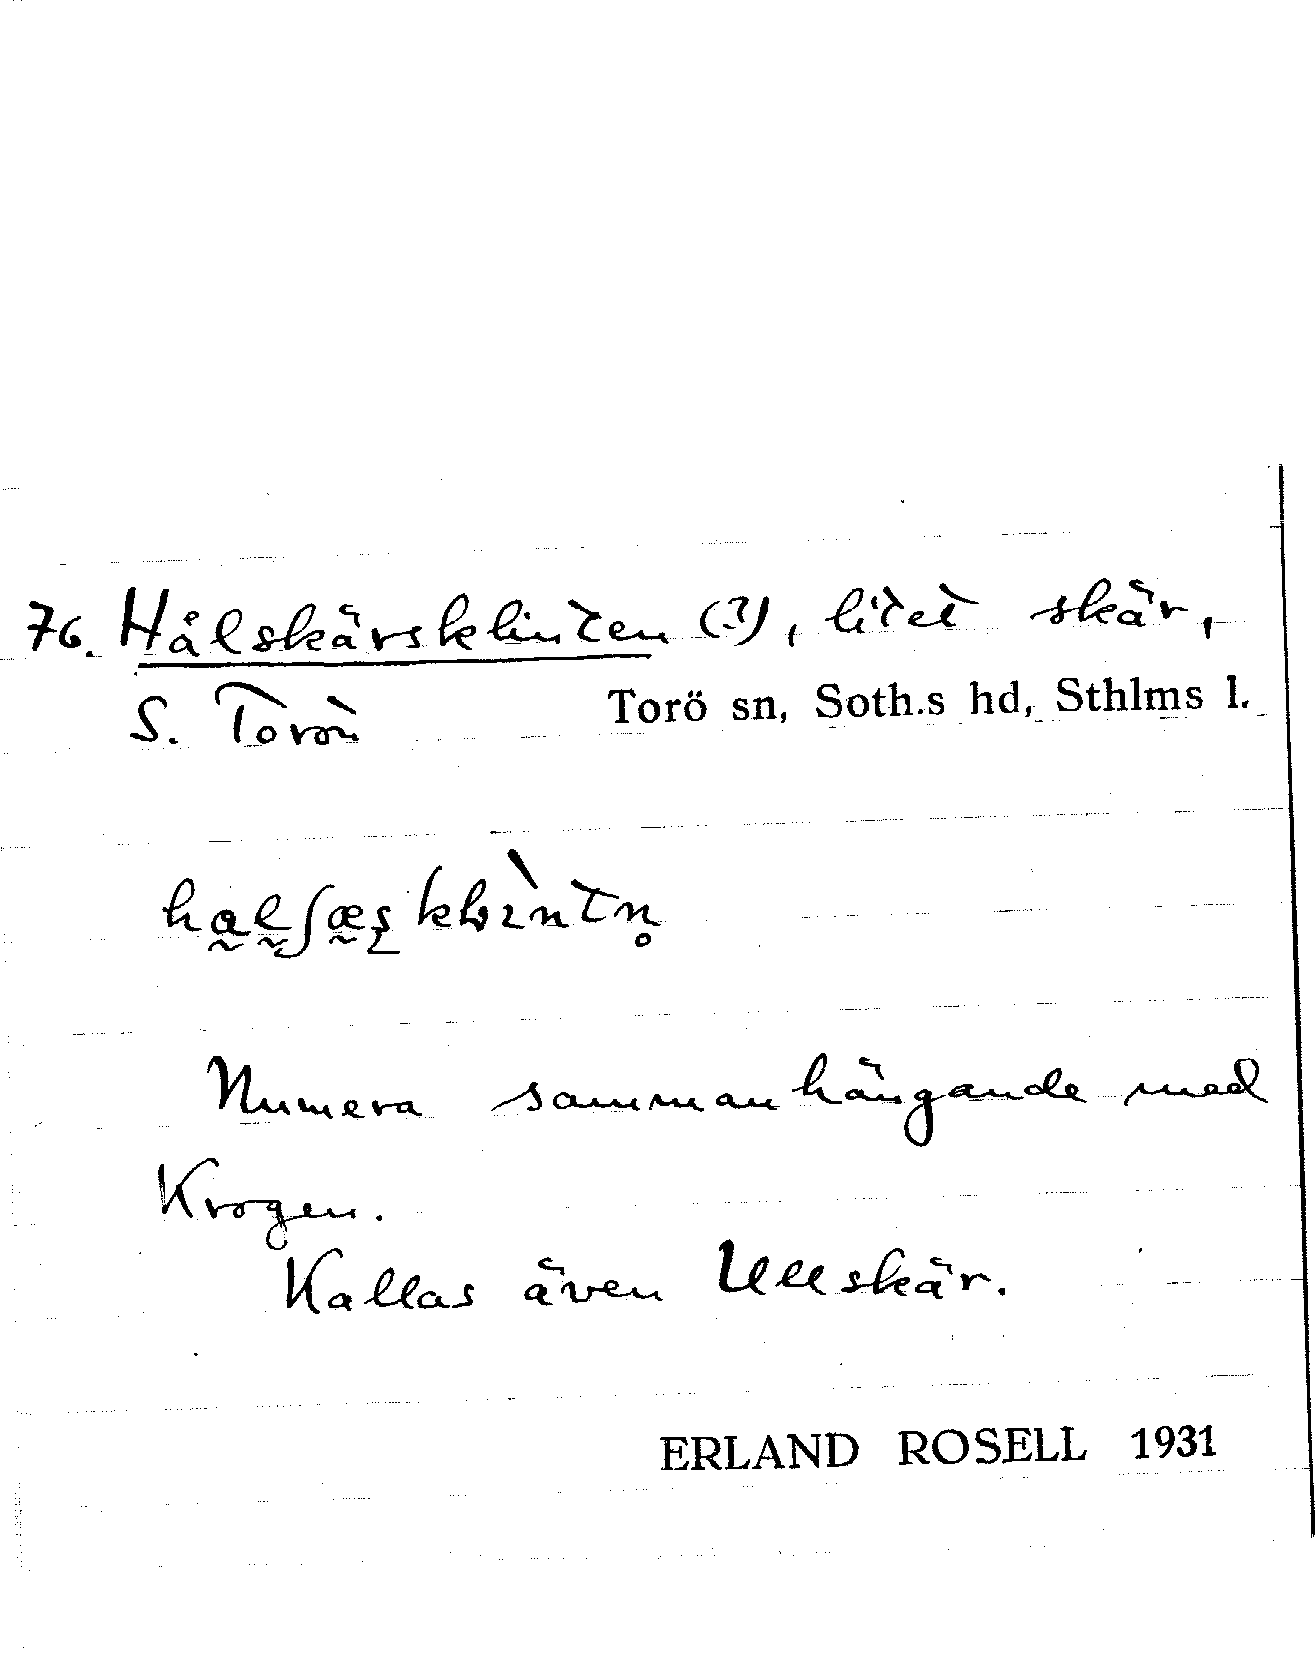 76. Hålskärsklinten (?), litet skär,
S. Torön Torö sn, Soth.s hd, Sthlms l.
Numera sammanhängande med
Krogen.
Kallas även Ullskär.
ERLAND ROSELL 1931